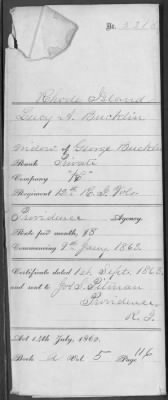 No. 2218
Rhode Island
Lucy A. Bucklin
Widow of George Bucklin
Rank Private
Company "K"
Regiment 12th R. I. Vols
Providence Agency.
Rate per month, $8
Commencing 9th Jany 1863.
Certificate dated 1st Sept. 1863,
and sent to Jos. S. Pitman
Providence
R. I.
Act 14th July, 1862.
Book A Vol. 5 Page 116